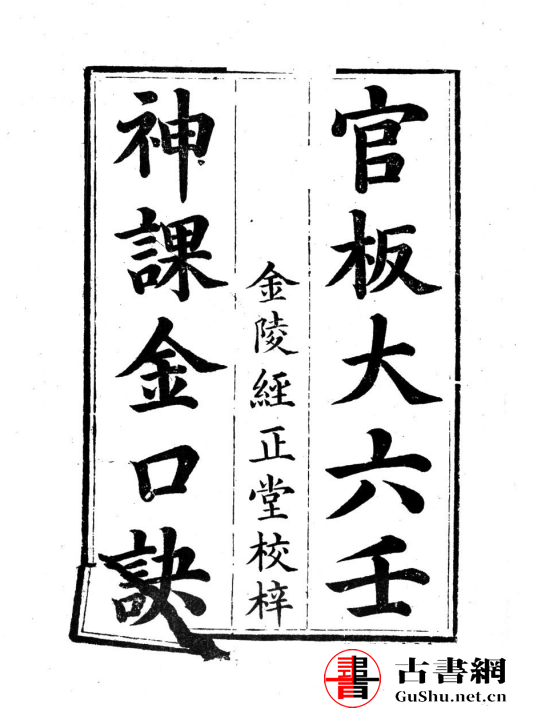 官板大六壬
金陵經正堂校梓
神課金口訣
書
古書網
GuShu.net.cn